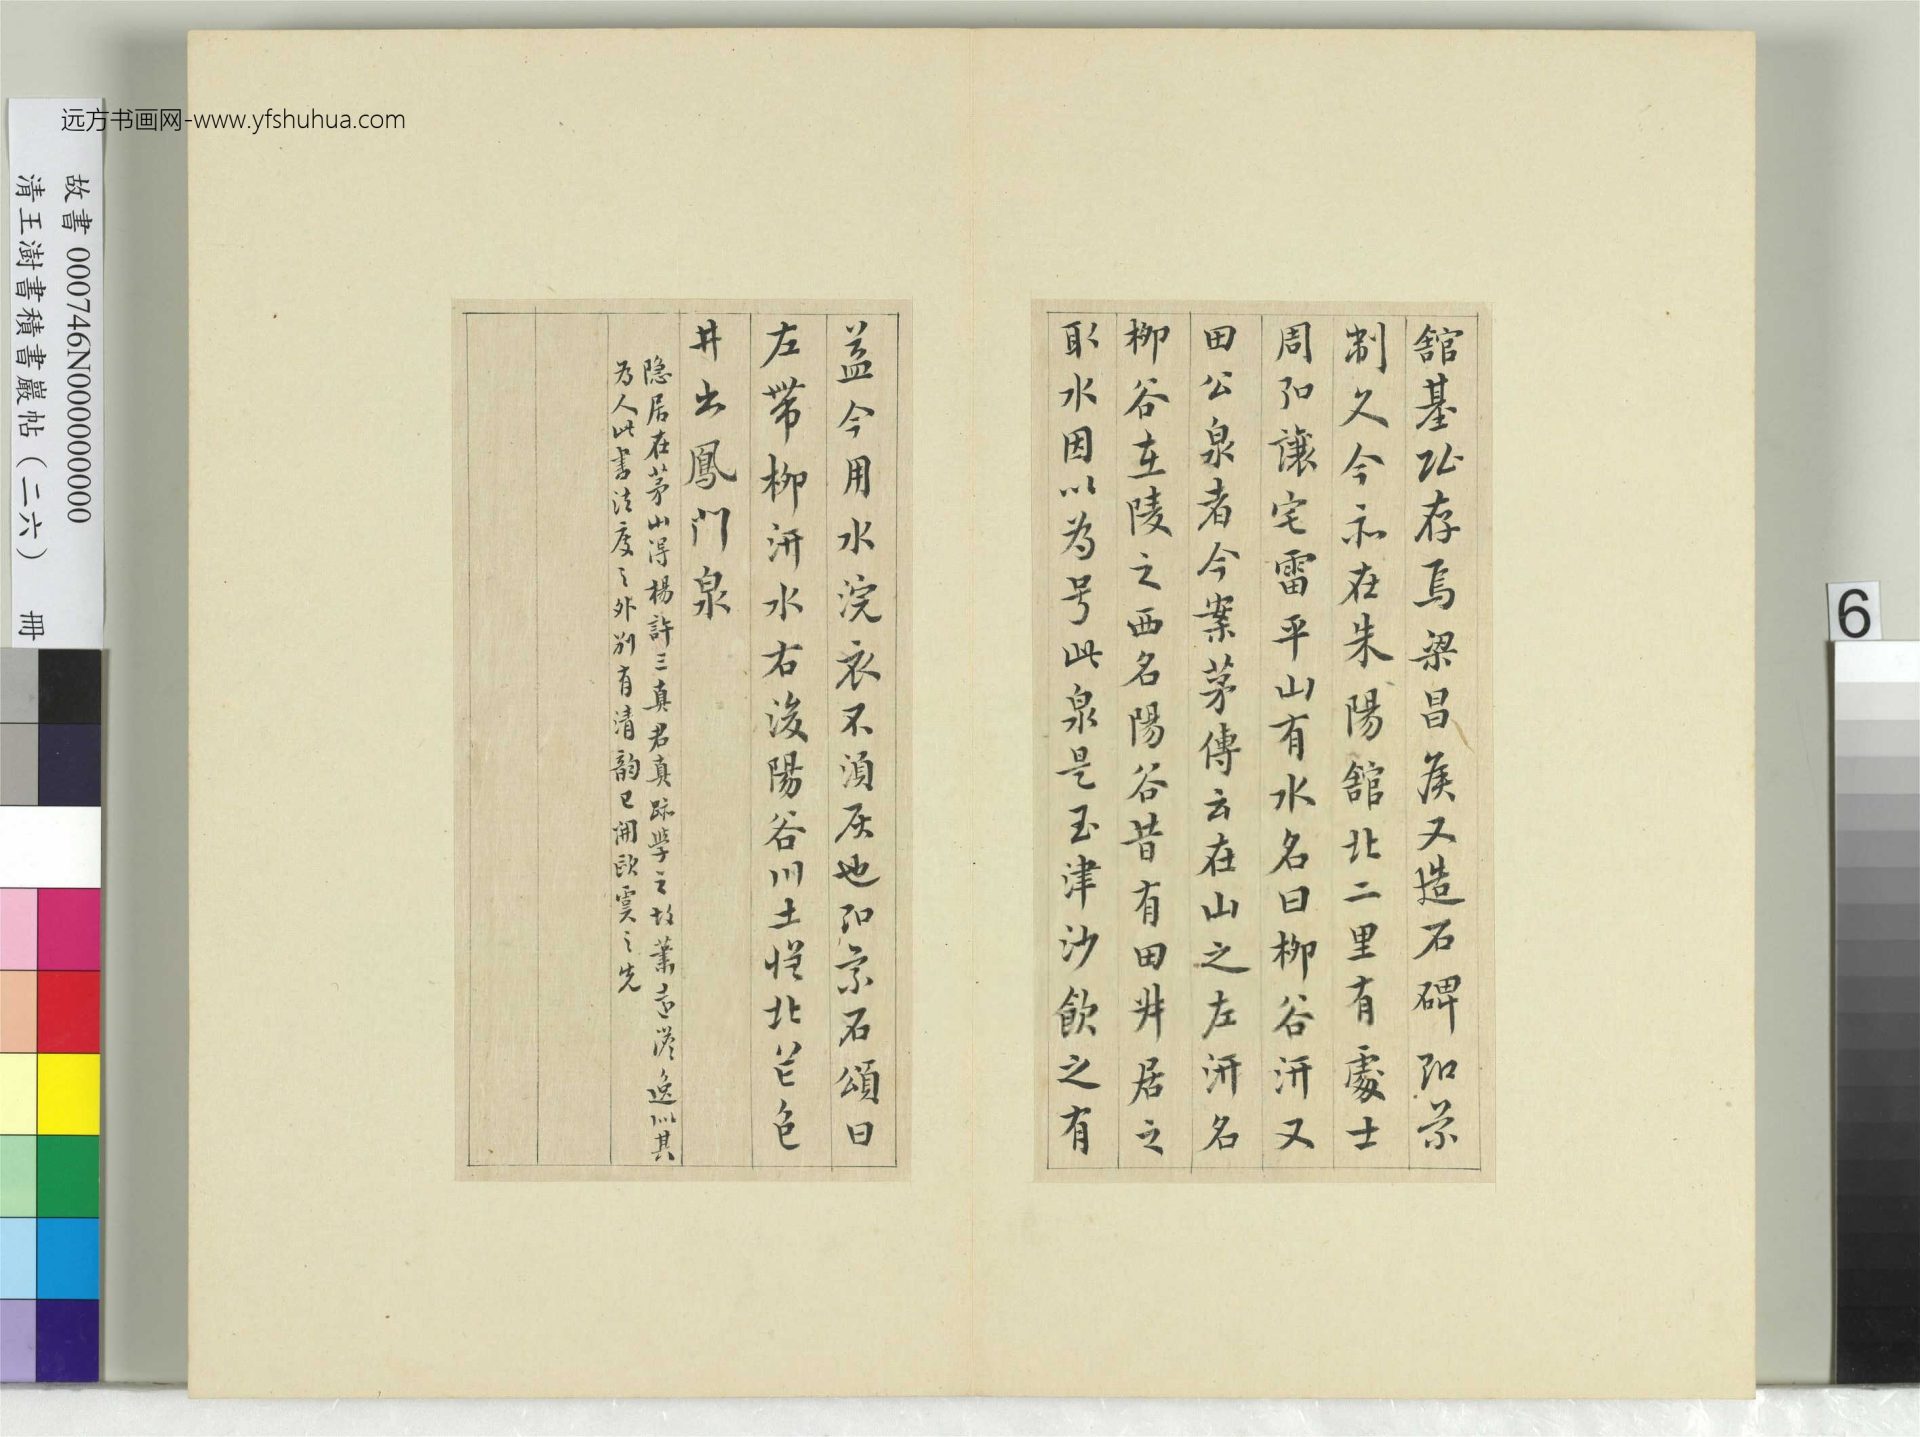 远方书画网-www.yfshuhua.com
故書 000746N000000000
清王澍書積書巖帖（二六） 冊
6
舘基址存焉梁昌侯又造石碑即景
制久今尒在朱陽舘北二里有處士
周即讓宅雷平山有水名曰柳谷汧又
田公泉者今案茅傳云在山之左汧名
柳谷在陵之西名陽谷昔有田井居之
取水因以為号此泉是玉津沙飲之有
益今用水浣衣不須灰也即景石頌曰
左帶柳汧水右浚陽谷川土懷北芒色
井出鳳門泉
隐居在茅山得楊許三真君真跡學之故蕭遠澹逸似其
為人此書法度之外别有清韵已開歐虞之先